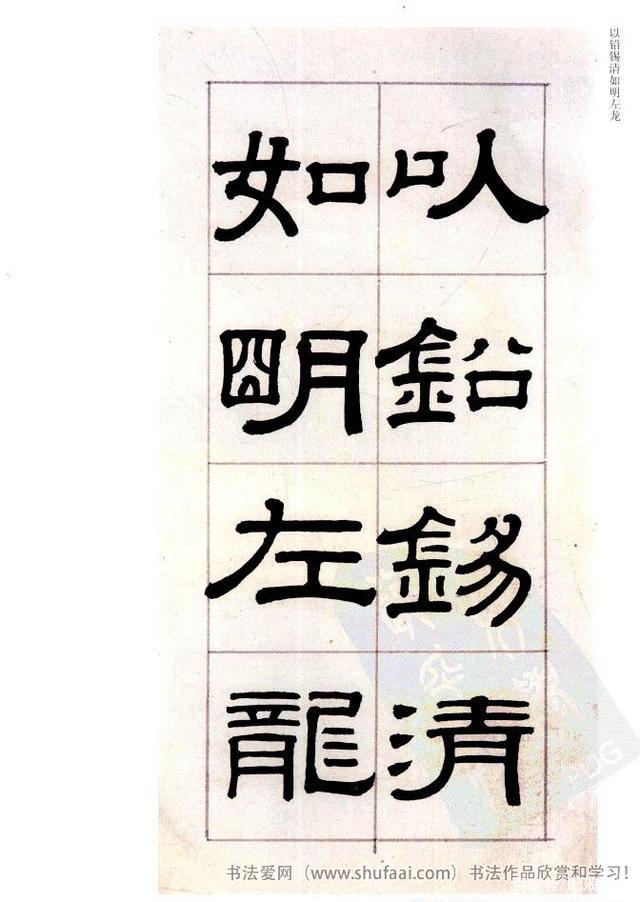 以铅锡清如明左龙
以鉛錫清
如明左龍
书法爱网（www.shufaai.com）书法作品欣赏和学习！